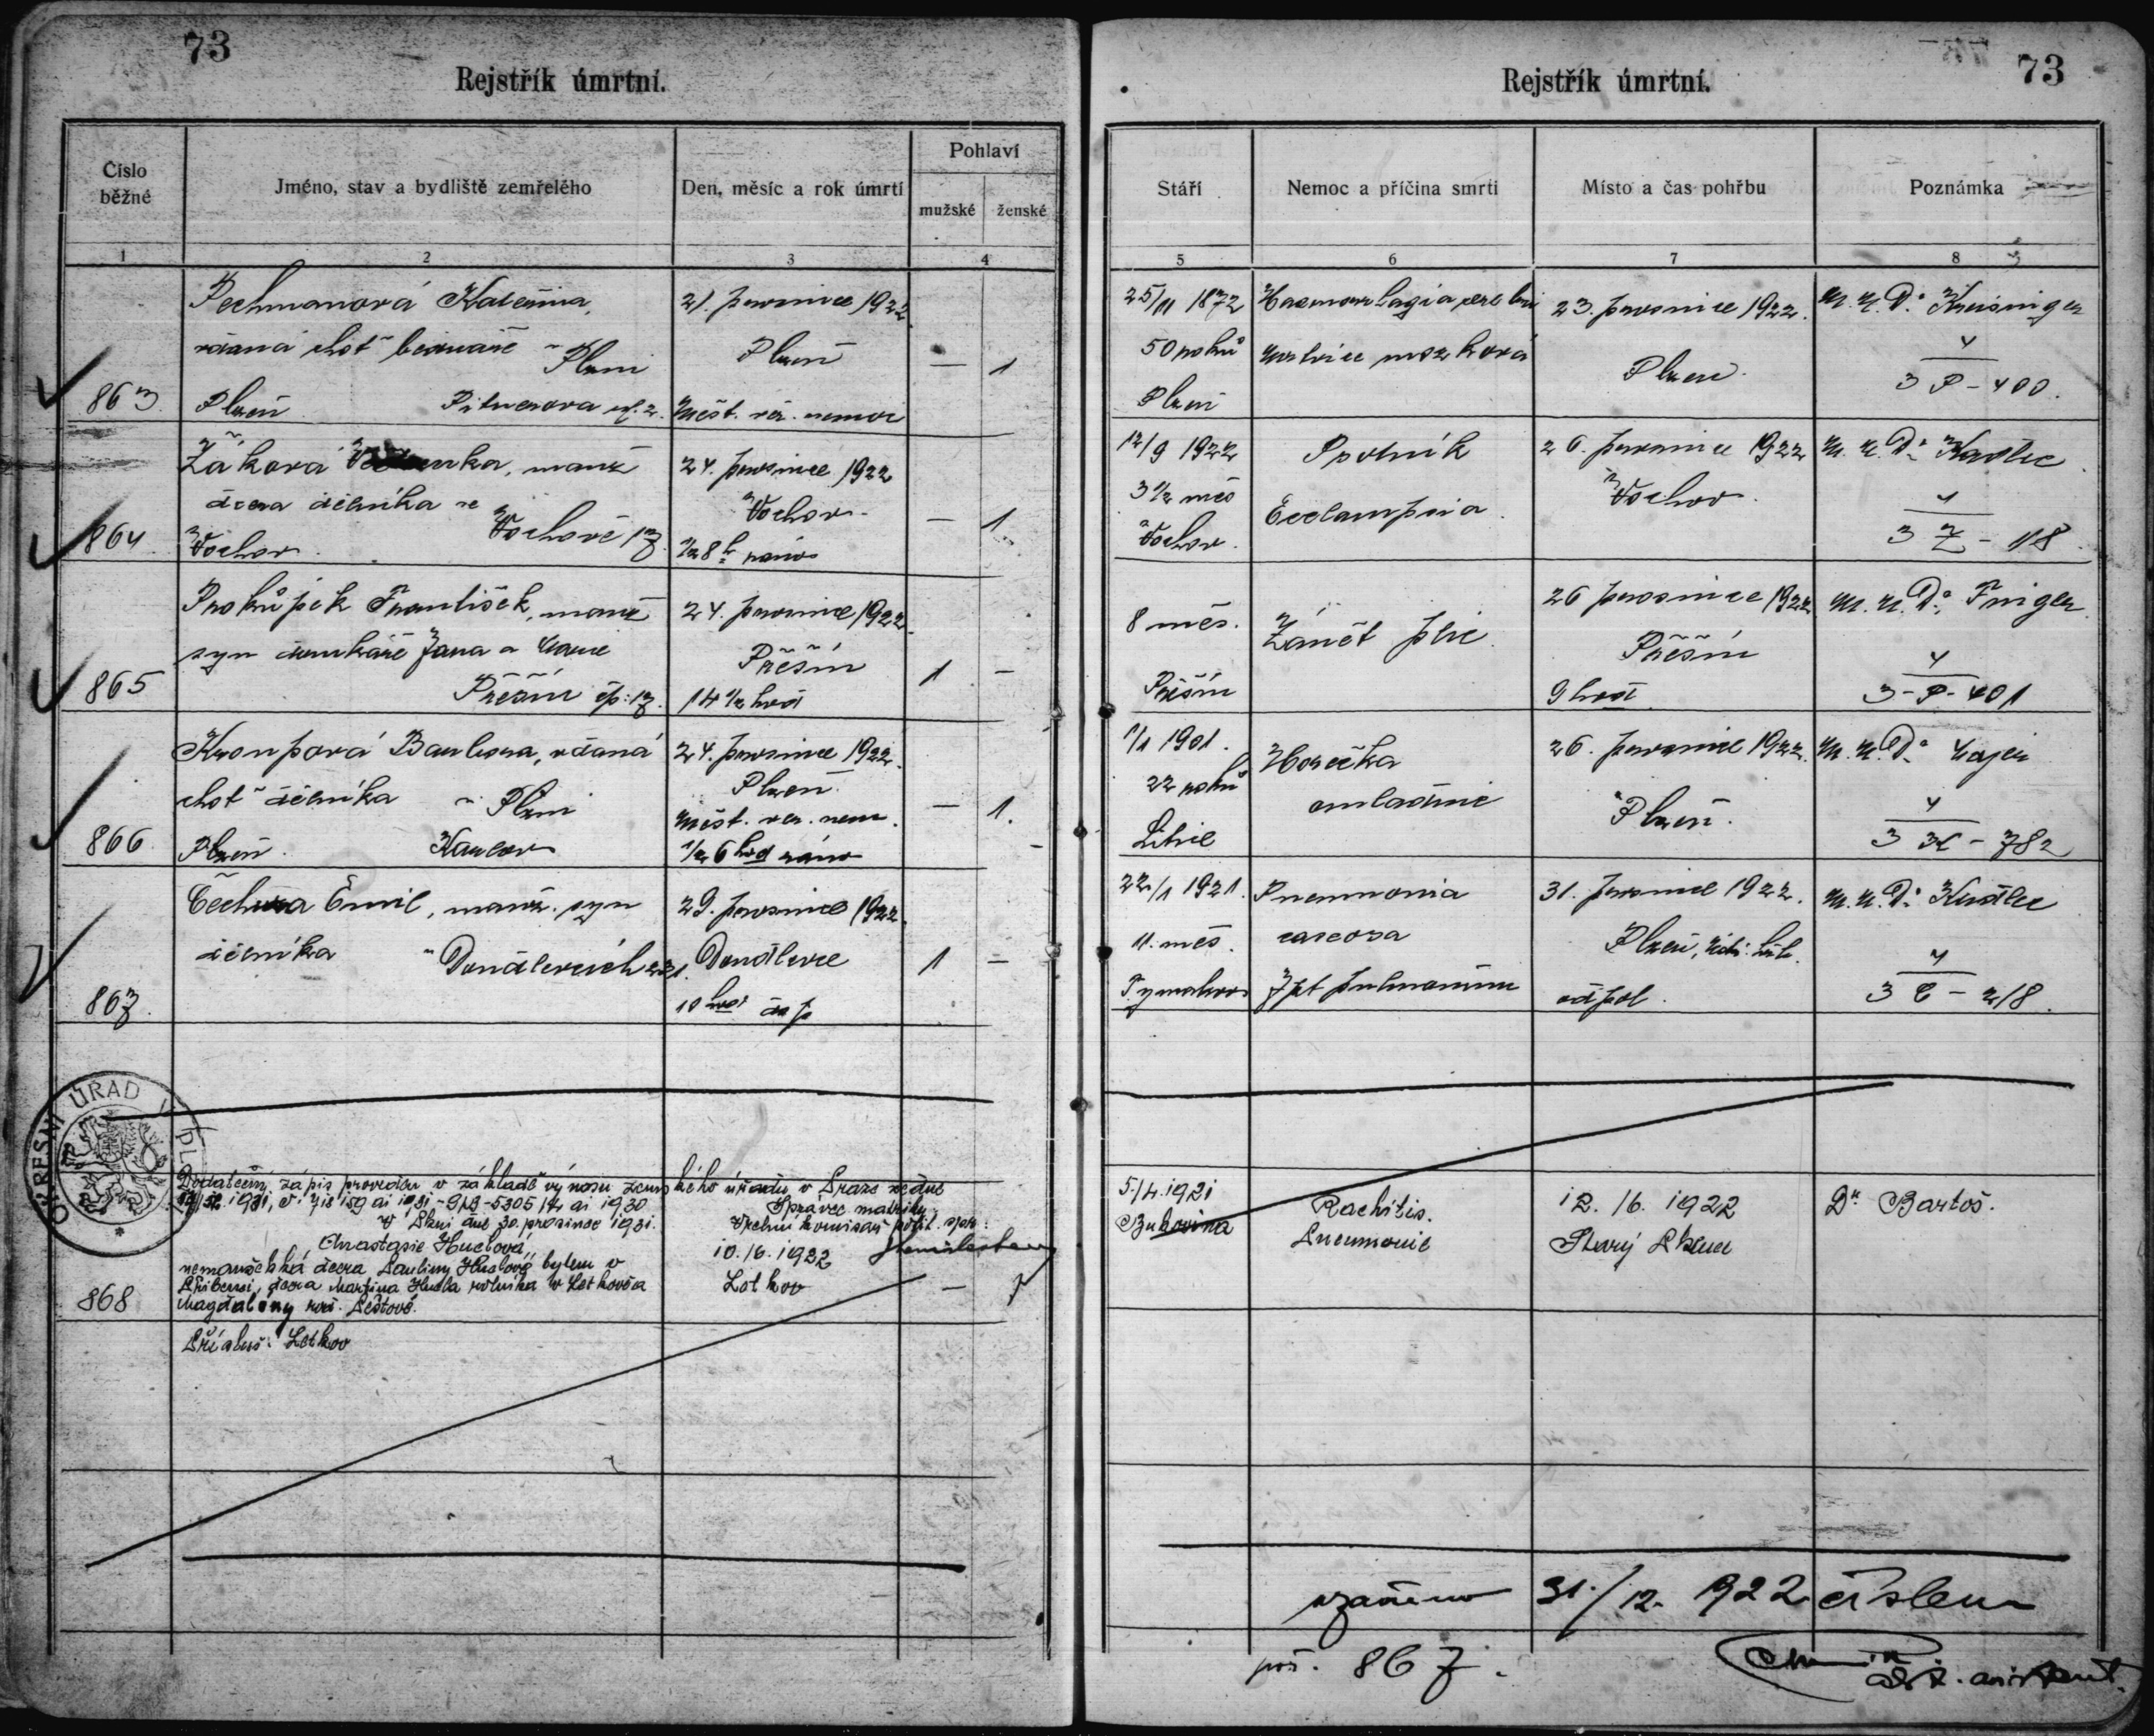 73
Rejstřík úmrtní.
Číslo běžné
Jméno, stav a bydliště zemřelého
Den, měsíc a rok úmrtí
Pohlaví
mužské
ženské
1
2
3
4
Pechmanová Kateřina,
vdaná choť v Plzni
863. Plzeň
21. prosince 1922.
Plzeň
měst. nemoc
— 1
Žáková manž
dcera dělníka ve
864. Vochov. Vochově 17.
24. prosince 1922
Vochov
1/2 8 h ráno
— 1
Prokůpek František, manž
syn domkáře Jana a Marie
865 Přešín čp: 17.
24. prosince 1922.
Přešín
14 1/2 hod
1 —
Barbora, vdaná
choť dělníka v Plzni
866 Plzeň. Karlov
24. prosince 1922.
Plzeň.
měst. nem.
1/2 6 hod ráno
— 1.
Čechura Emil, manž. syn
dělníka v Doudlevcích 221.
867.
29. prosince 1922.
Doudlevce
10 hod dop
1 —
OKRESNÍ ÚŘAD V PL
Dodatečný zápis proveden v základě výnosu zemského úřadu v Praze ze dne
1931, č. 1931 - 5305 1930
V Plzni dne 30. prosince 1931.
Správce matriky:
Vrchní komisař polit. spr.:
Anastasie Huclová,
nemanželská dcera Pauliny Huclové bytem v
Příbrami, dcera Martina Hucla rolníka v Letkově a
868 Magdalény roz.
Přísluš: Letkov
10./6. 1922
Letkov
— 1
73
Rejstřík úmrtní.
Stáří
Nemoc a příčina smrti
Místo a čas pohřbu
Poznámka
5
6
7
8
25/11 1872
50 roků
Plzeň
Haemorrhagia cerebri
mozková
23. prosince 1922.
Plzeň.
M. U. Dr.
4
3 P - 400.
12/9 1922
3 1/2 měs
Vochov.
Psotník
Eclampsia.
26. prosince 1922
Vochov.
M. U. Dr. Kudlec
4
3 Ž - 118.
8 měs.
Přešín
Zánět plic.
26 prosince 1922
Přešín
9 hod
M. U. Dr.
4
3 - P - 401
1/1 1901.
22 roků
Litice
Horečka
omladnic
26. prosince 1922.
Plzeň.
M. U. Dr.
4
3 K - 782
22/1 1921.
11. měs.
Tymakov
Pneumonia
caseosa
Tpt pulmonum
31. prosince 1922.
Plzeň,
odpol.
M. U. Dr. Kudlec
4
3 C - 218.
5./4. 1921
Bukovina
Rachitis.
Pneumonie
12. /6. 1922
Starý Plzenec
Dr. Bartoš.
uzavřeno 31./12. 1922 číslem
poř. 867.
asistent.